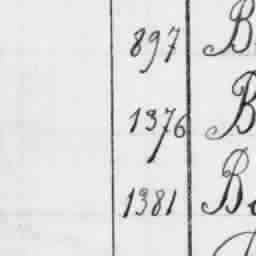 897 B
1376 B
1381 Bo